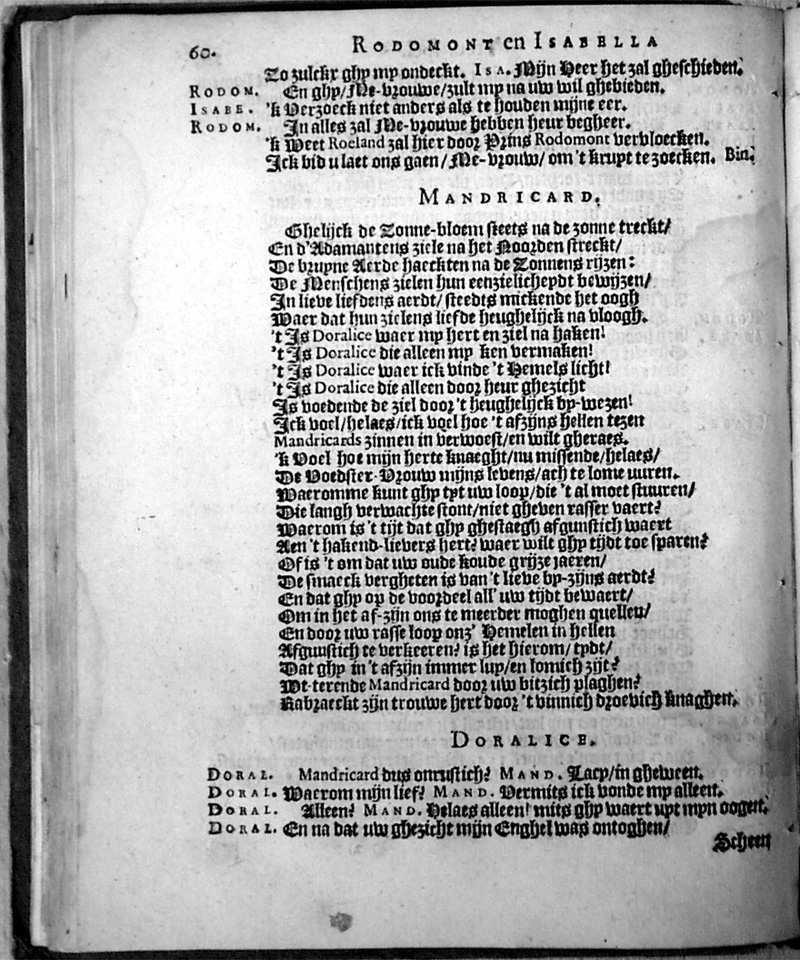 60. RODOMONT en ISABELLA
Zo zulckx ghy my ondeckt. ISA. Mijn Heer het zal gheschieden.
RODOM. En ghy/ Me-vrouwe/ zult my na uw wil ghebieden.
ISABE. 'k Verzoeck niet anders als te houden mijne eer.
RODOM. In alles zal Me-vrouwe hebben heur begheer.
'k Weet Roeland zal hier door Prins Rodomont vervloecken.
Ick bid u laet ons gaen/ Me-vrouw/ om 't kruyt te zoecken. Bin.
MANDRICARD.
Ghelijck de Zonne-bloem steets na de zonne treckt/
En d'Adamantens ziele na het Noorden streckt/
De bruyne Aerde haeckten na de Zonnens rijzen:
De Menschens zielen hun eenzielicheydt bewijzen/
In lieve liefdens aerdt/ steedts mickende het oogh
Waer dat hun zielens liefde heughelijck na vloogh.
't Is Doralice waer my hert en ziel na haken!
't Is Doralice die alleen my ken vermaken!
't Is Doralice waer ick vinde 't Hemels licht!
't Is Doralice die alleen door heur ghezicht
Is voedende de ziel door 't heughelijck by-wezen!
Ick voel/ helaes/ ick voel hoe 't afzijns hellen tezen
Mandricards zinnen in verwoest/ en wilt gheraes.
'k Voel hoe mijn herte knaeght/ nu missende/ helaes/
De Voedster-Vrouw mijns levens/ ach te lome uuren.
Waeromme kunt ghy tyt uw loop/ die 't al moet stuuren/
Die langh verwachte stont/ niet gheven rasser vaert?
Waerom is 't tijt dat ghy ghestaegh afgunstich waert
Aen 't hakend-lievers hert? waer wilt ghy tydt toe sparen?
Of is 't om dat uw oude koude grijze jaeren/
De smaeck vergheten is van 't lieve by-zijns aerdt?
En dat ghy op de voordeel all' uw tijdt bewaert/
Om in het af-zijn ons te meerder moghen quellen/
En door uw rasse loop onz' Hemelen in hellen
Afgunstich te verkeeren? is het hierom/ tydt/
Dat ghy in 't afzijn immer luy/ en lomich zijt?
Wt-terende Mandricard door uw bitzich plaghen?
Rabraeckt zijn trouwe hert door 't vinnich droevich knaghen.
DORALICE.
DORAL. Mandricard dus onrustich? MAND. Laey/ in gheween.
DORAL. Waerom mijn lief? MAND. Vermits ick vonde my alleen.
DORAL. Alleen? MAND. Helaes alleen! mits ghy waert uyt myn oogen.
DORAL. En na dat uw ghezicht mijn Enghel was ontoghen/
Scheen